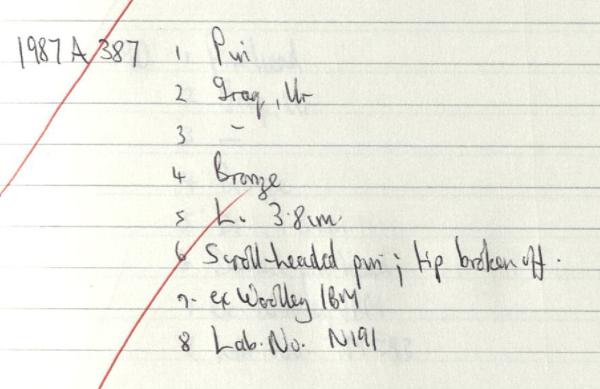 1987 A 387 1 Pin
2 Iraq, Ur
3 -
4 Bronze
5 L. 3.8cm.
6 Scroll-headed pin; tip broken off.
7. ex Woolley IBM
8 Lab. No. N191